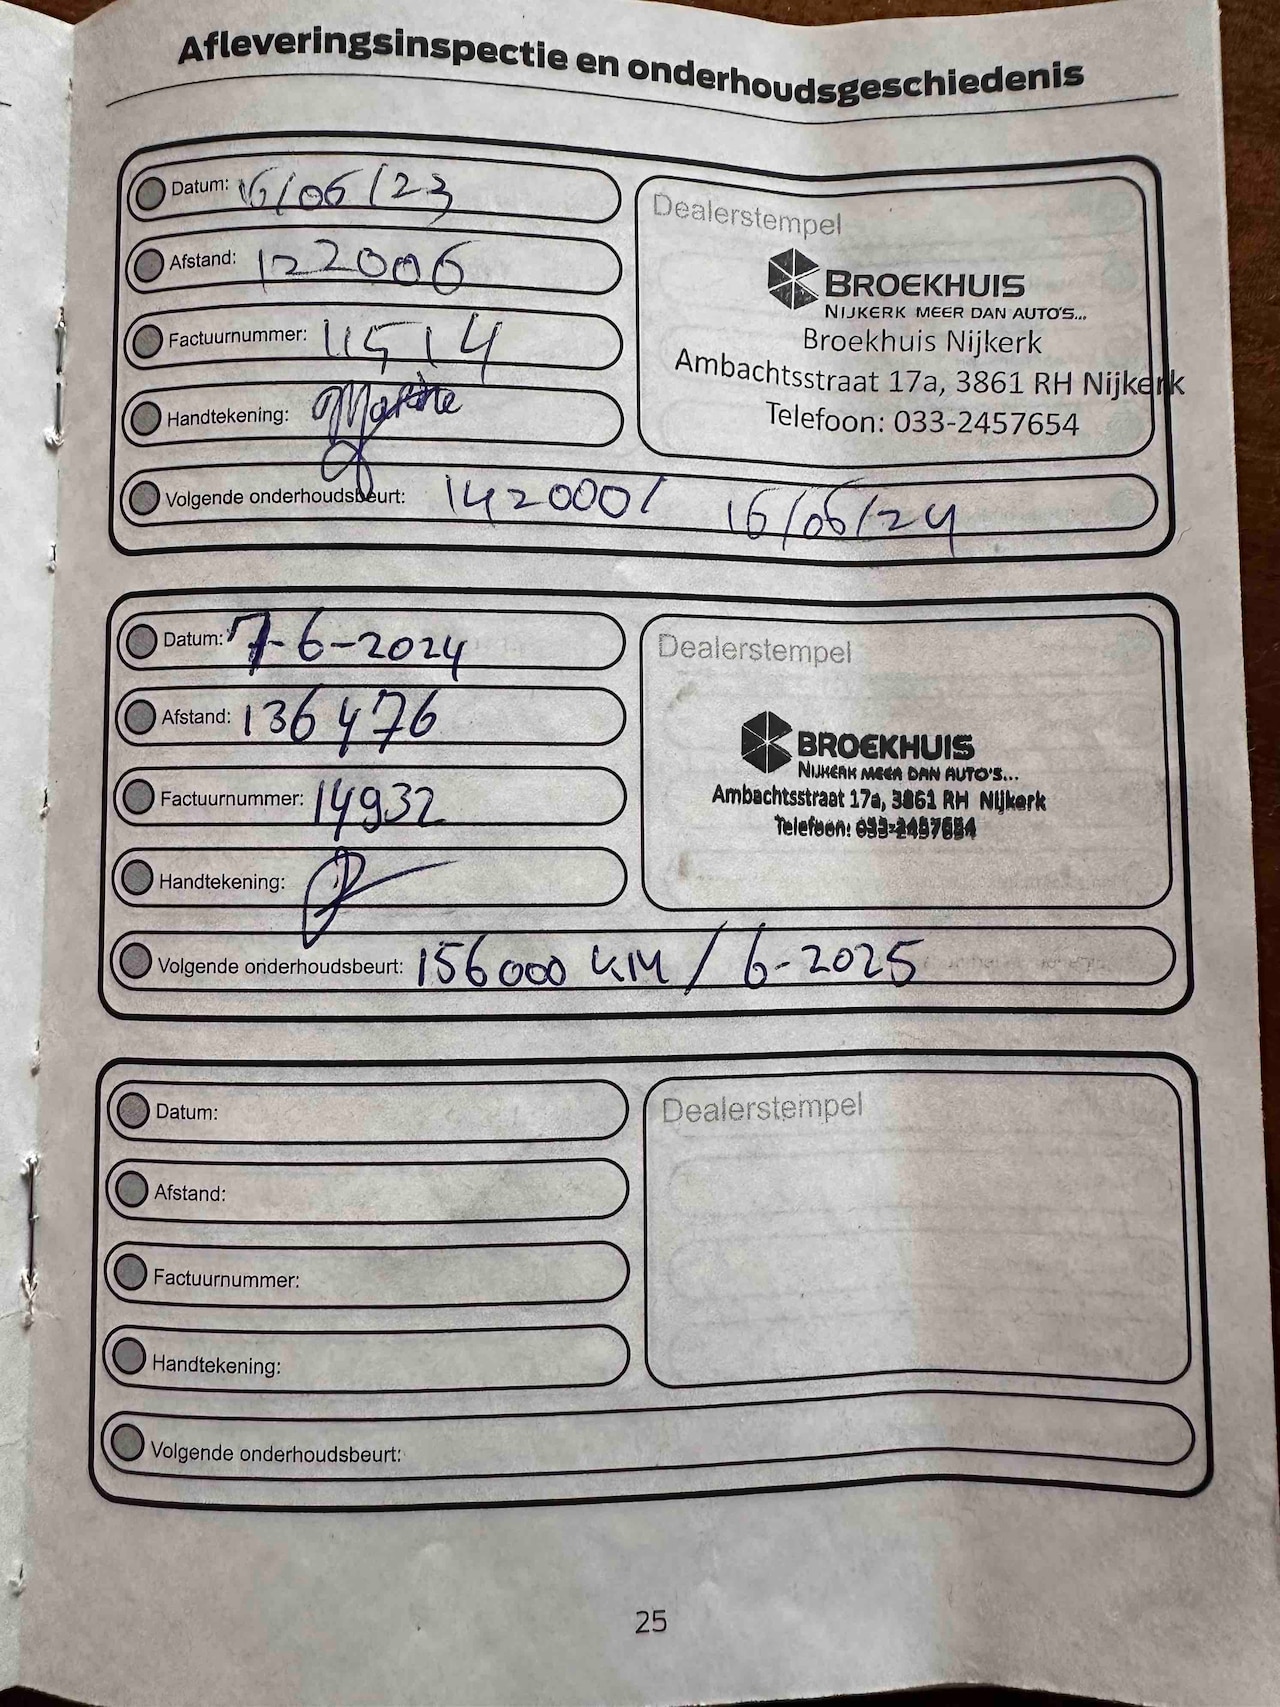 Afleveringsinspectie en onderhoudsgeschiedenis
Datum: 16/06/23
Afstand: 122006
Factuurnummer: 11514
Handtekening:
Volgende onderhoudsbeurt: 142000/ 16/06/24
Dealerstempel
BROEKHUIS
NIJKERK MEER DAN AUTO'S...
Broekhuis Nijkerk
Ambachtsstraat 17a, 3861 RH Nijkerk
Telefoon: 033-2457654
Datum: 7-6-2024
Afstand: 136476
Factuurnummer: 14932
Handtekening:
Volgende onderhoudsbeurt: 156000 KM / 6-2025
Dealerstempel
BROEKHUIS
NIJKERK MEER DAN AUTO'S...
Ambachtsstraat 17a, 3861 RH Nijkerk
Telefoon: 033-2457654
Datum:
Afstand:
Factuurnummer:
Handtekening:
Volgende onderhoudsbeurt:
Dealerstempel
25